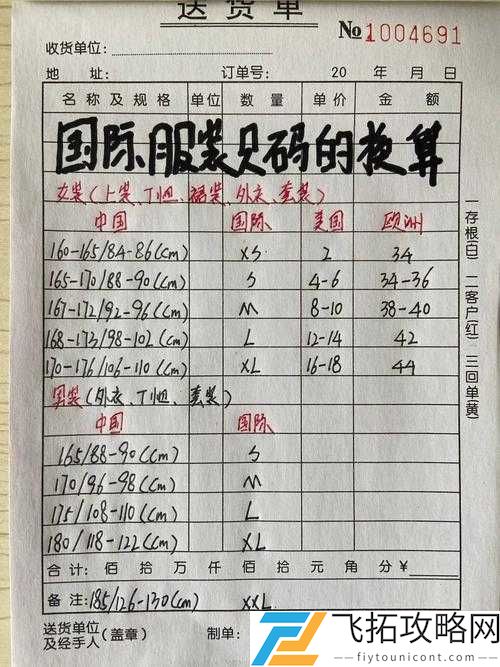 送货单
№1004691
收货单位:
地 址: 订单号: 20 年 月 日
名称及规格 单位 数量 单价 金额
国际服装尺码的换算
女装(上装、T恤、裙装、外衣、套装)
中国 国际 美国 欧洲
160-165/84-86(cm) XS 2 34
165-170/88-90(cm) S 4-6 34-36
167-172/92-96(cm) M 8-10 38-40
168-173/98-102(cm) L 12-14 42
170-176/106-110(cm) XL 16-18 44
男装(外衣、T恤、套装)
中国 国际
165/88-90(cm) S
170/96-98(cm) M
175/108-110(cm) L
180/118-122(cm) XL
合计: 佰 拾 万 仟 佰 拾 元 角 分 ¥
备注: 185/126-130(cm) XXL
送货单位及经手人(盖章) 制单:
一存根(白) 二客户(红) 三回单(黄)
飞拓攻略网
fiytounicont.com